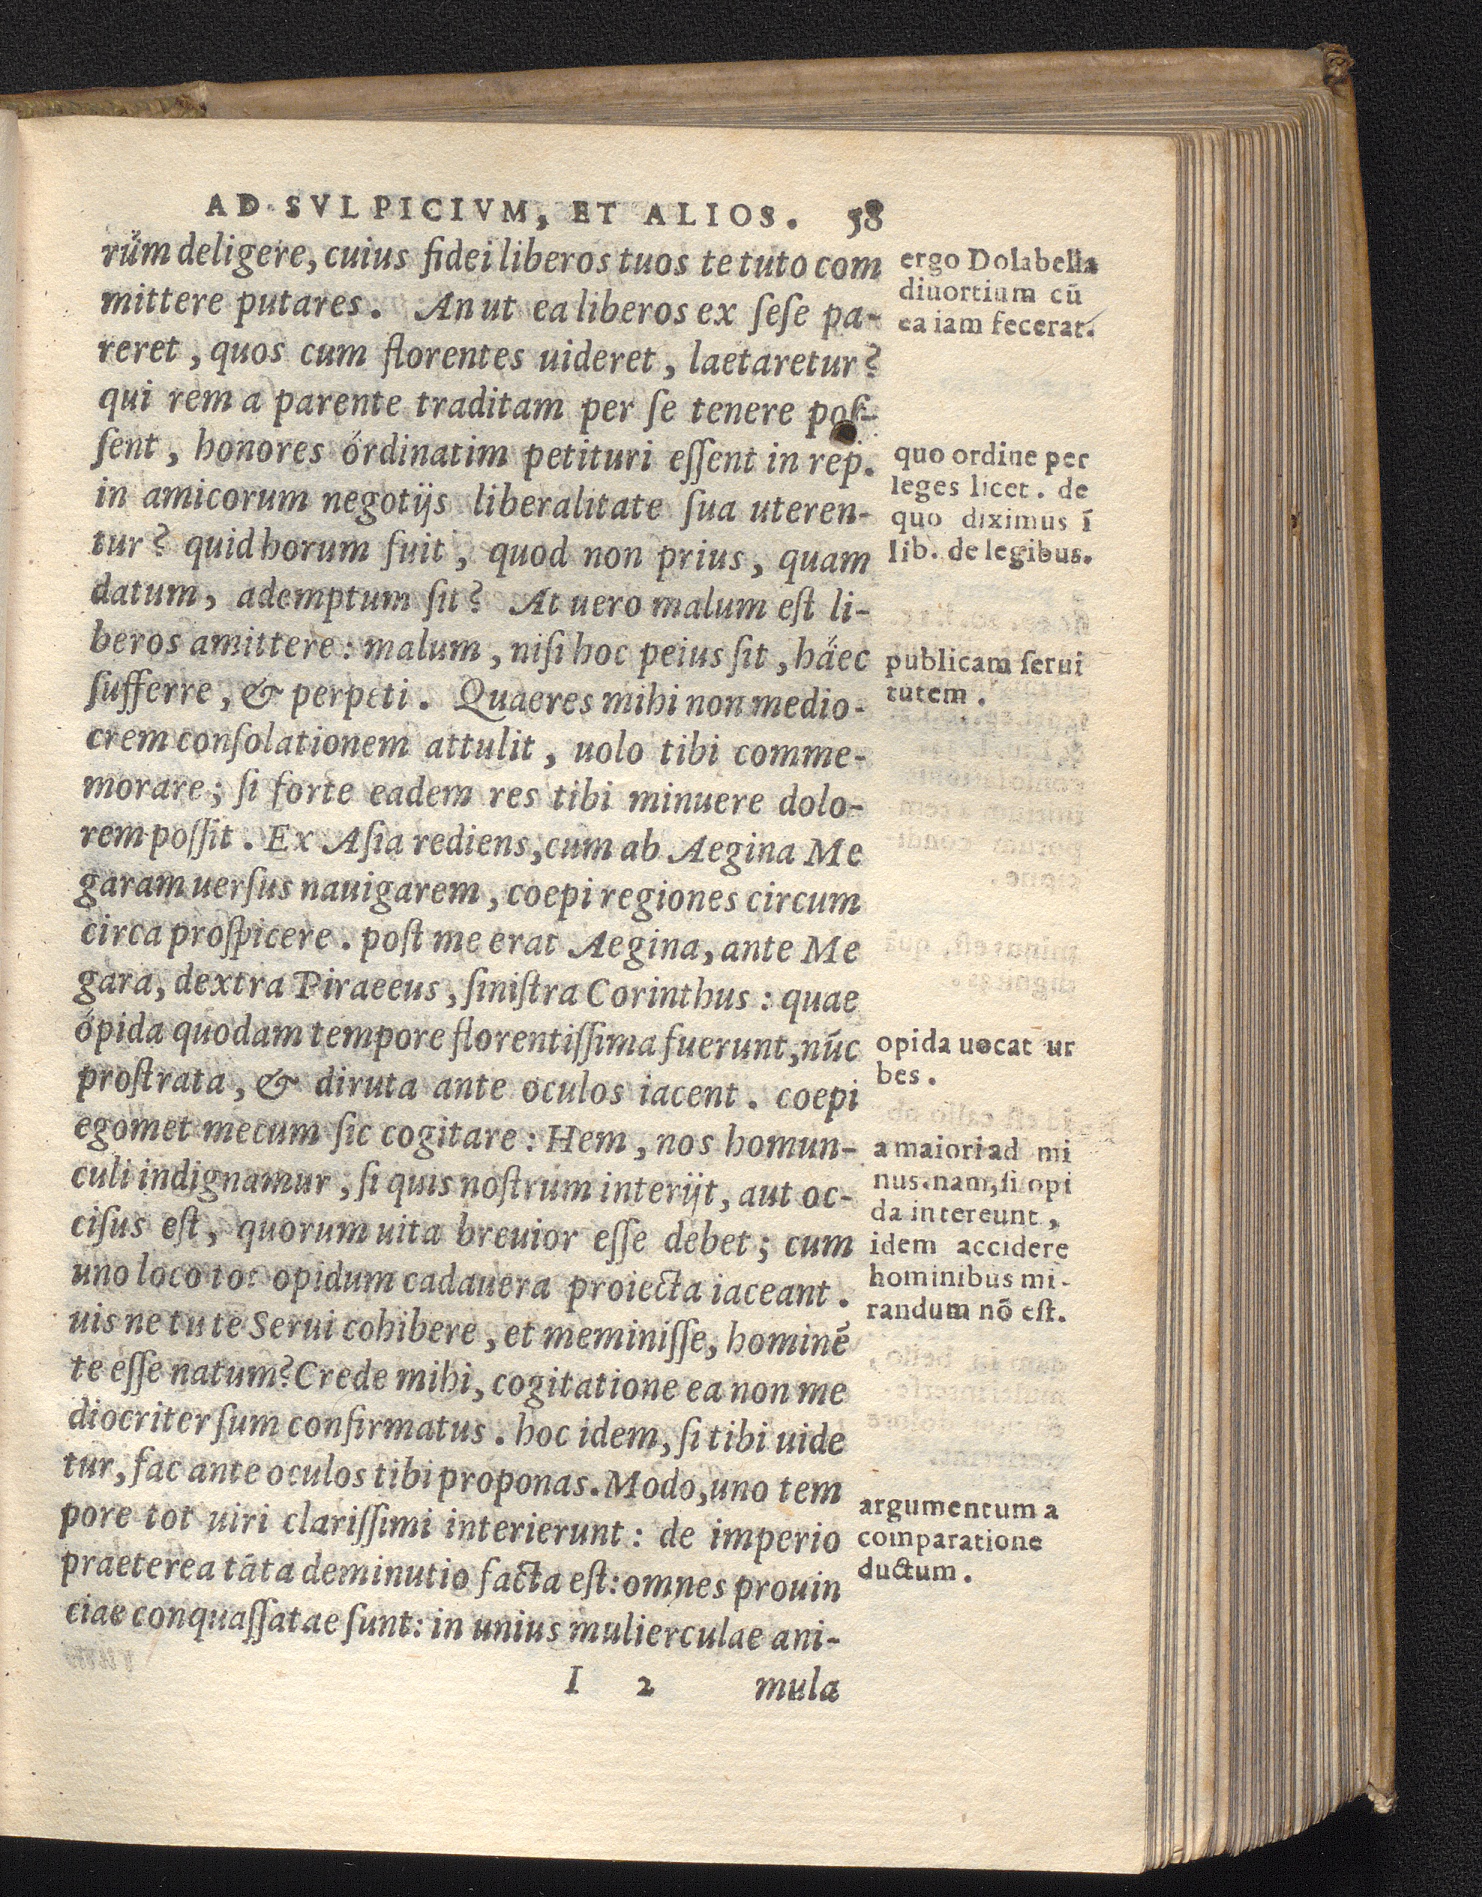 AD SVLPICIVM, ET ALIOS. 58
rũm deligere, cuius fidei liberos tuos te tuto com
mittere putares. An ut ea liberos ex ſeſe pa-
reret, quos cum florentes uideret, laetaretur?
qui rem a parente traditam per ſe tenere poſ-
ſent, honores órdinatim petituri eſſent in rep.
in amicorum negotijs liberalitate ſua uteren-
tur? quid horum fuit, quod non prius, quam
datum, ademptum ſit? At uero malum eſt li-
beros amittere: malum, niſi hoc peius ſit, háec
ſufferre, & perpeti. Quaeres mihi non medio-
crem conſolationem attulit, uolo tibi comme-
morare; ſi forte eadem res tibi minuere dolo-
rem poſſit. Ex Aſia rediens, cum ab Aegina Me
garam uerſus nauigarem, coepi regiones circum
circa proſpicere. poſt me erat Aegina, ante Me
gara, dextra Piraeeus, ſiniſtra Corinthus: quae
ópida quodam tempore florentiſſima fuerunt, nũc
proſtrata, & diruta ante oculos iacent. coepi
egomet mecum ſic cogitare: Hem, nos homun-
culi indignamur, ſi quis noſtrum interijt, aut oc-
ciſus eſt, quorum uita breuior eſſe debet; cum
uno loco tot opidum cadauera proiecta iaceant.
uis ne tu te Serui cohibere, et meminiſſe, hominẽ
te eſſe natum? Crede mihi, cogitatione ea non me
diocriter ſum confirmatus. hoc idem, ſi tibi uide
tur, fac ante oculos tibi proponas. Modo, uno tem
pore tot uiri clariſſimi interierunt: de imperio
praeterea tãta deminutio facta eſt: omnes prouin
ciae conquaſſatae ſunt: in unius mulierculae ani-
I 2 mula
ergo Dolabella
diuortium cũ
ea iam fecerat.
quo ordine per
leges licet. de
quo diximus ĩ
lib. de legibus.
publicam ſerui
tutem.
opida uocat ur
bes.
a maiori ad mi
nus. nam, ſi opi
da intereunt,
idem accidere
hominibus mi-
randum nõ eſt.
argumentum a
comparatione
ductum.